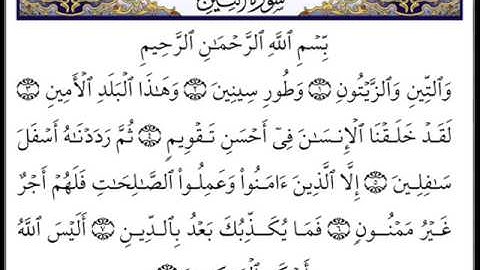 سورة التين
بِّسْمِ ٱللَّهِ ٱلرَّحْمَـٰنِ ٱلرَّحِيمِ
وَٱلتِّينِ وَٱلزَّيْتُونِ ١ وَطُورِ سِينِينَ ٢ وَهَـٰذَا ٱلْبَلَدِ ٱلْأَمِينِ ٣
لَقَدْ خَلَقْنَا ٱلْإِنسَـٰنَ فِىٓ أَحْسَنِ تَقْوِيمٍ ٤ ثُمَّ رَدَدْنَـٰهُ أَسْفَلَ
سَـٰفِلِينَ ٥ إِلَّا ٱلَّذِينَ ءَامَنُوا۟ وَعَمِلُوا۟ ٱلصَّـٰلِحَـٰتِ فَلَهُمْ أَجْرٌ
غَيْرُ مَمْنُونٍ ٦ فَمَا يُكَذِّبُكَ بَعْدُ بِٱلدِّينِ ٧ أَلَيْسَ ٱللَّهُ